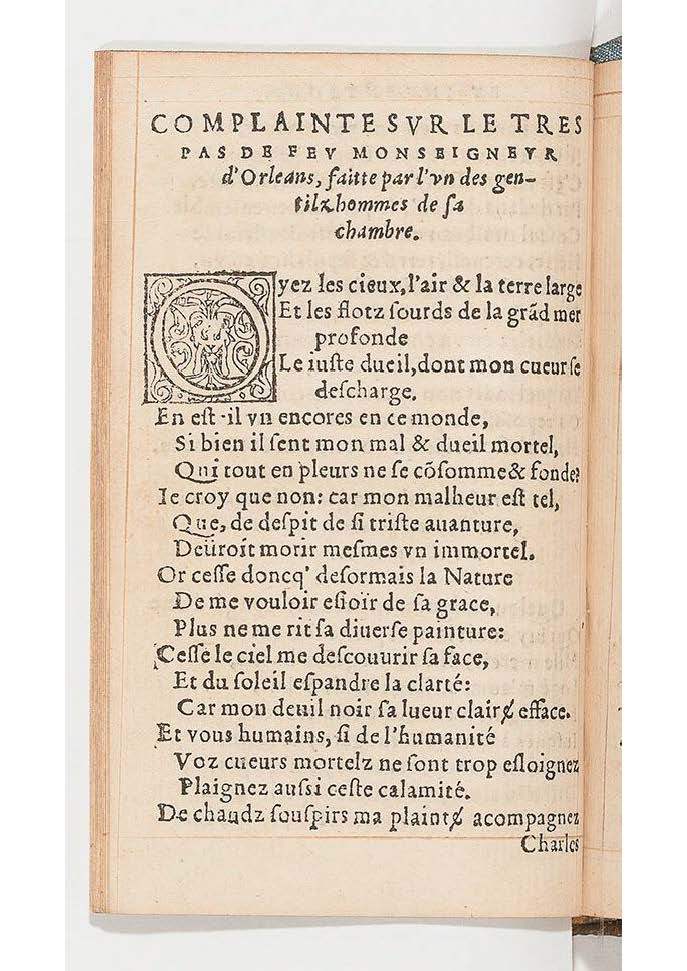 COMPLAINTE SVR LE TRES
PAS DE FEV MONSEIGNEVR
d'Orleans, faitte par l'vn des gen-
tilzhommes de sa
chambre.
Oyez les cieux, l'air & la terre large
Et les flotz sourds de la grãd mer
profonde
Le iuste dueil, dont mon cueur se
descharge.
En est-il vn encores en ce monde,
Si bien il sent mon mal & dueil mortel,
Qui tout en pleurs ne se cõsomme & fonde?
Ie croy que non: car mon malheur est tel,
Que, de despit de si triste auanture,
Deüroit morir mesmes vn immortel.
Or cesse doncq' desormais la Nature
De me vouloir esioïr de sa grace,
Plus ne me rit sa diuerse painture:
Cesse le ciel me descouurir sa face,
Et du soleil espandre la clarté:
Car mon deuil noir sa lueur clairɇ efface.
Et vous humains, si de l'humanité
Voz cueurs mortelz ne sont trop esloignez
Plaignez aussi ceste calamité.
De chaudz souspirs ma plaintɇ acompagnez
Charles